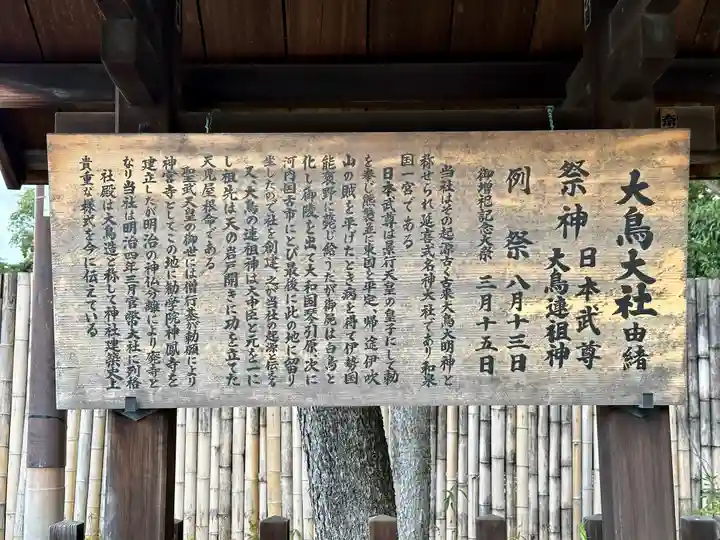 大鳥大社由緒
祭神 日本武尊
大鳥連祖神
例祭 八月十三日
御増祀記念大祭 三月十五日
当社はその起源古く古来大鳥大明神と
称せられ延喜式名神大社であり和泉
国一宮である
日本武尊は景行天皇の皇子にして勅
を奉じ熊襲並に東国を平定、帰途伊吹
山の賊を平げたとき病を得て伊勢国
能褒野に薨じ給うたが御屍は白鳥と
化し御陵を出て大和国琴引原、次に
河内国古市にとび最後に此の地に留り
坐したので社を創建、之が当社の起源と伝る
又、大鳥の連祖神は大中臣と元を一に
し祖先は天の岩戸開きに功を立てた
天児屋根命である
聖武天皇の御世には僧行基が勅願により
神宮寺としてこの地に勧学院神鳳寺を
建立したが明治の神仏分離により廃寺と
なり当社は明治四年三月官幣大社に列格
社殿は大鳥造と称して神社建築史上
貴重な様式を今に伝えている